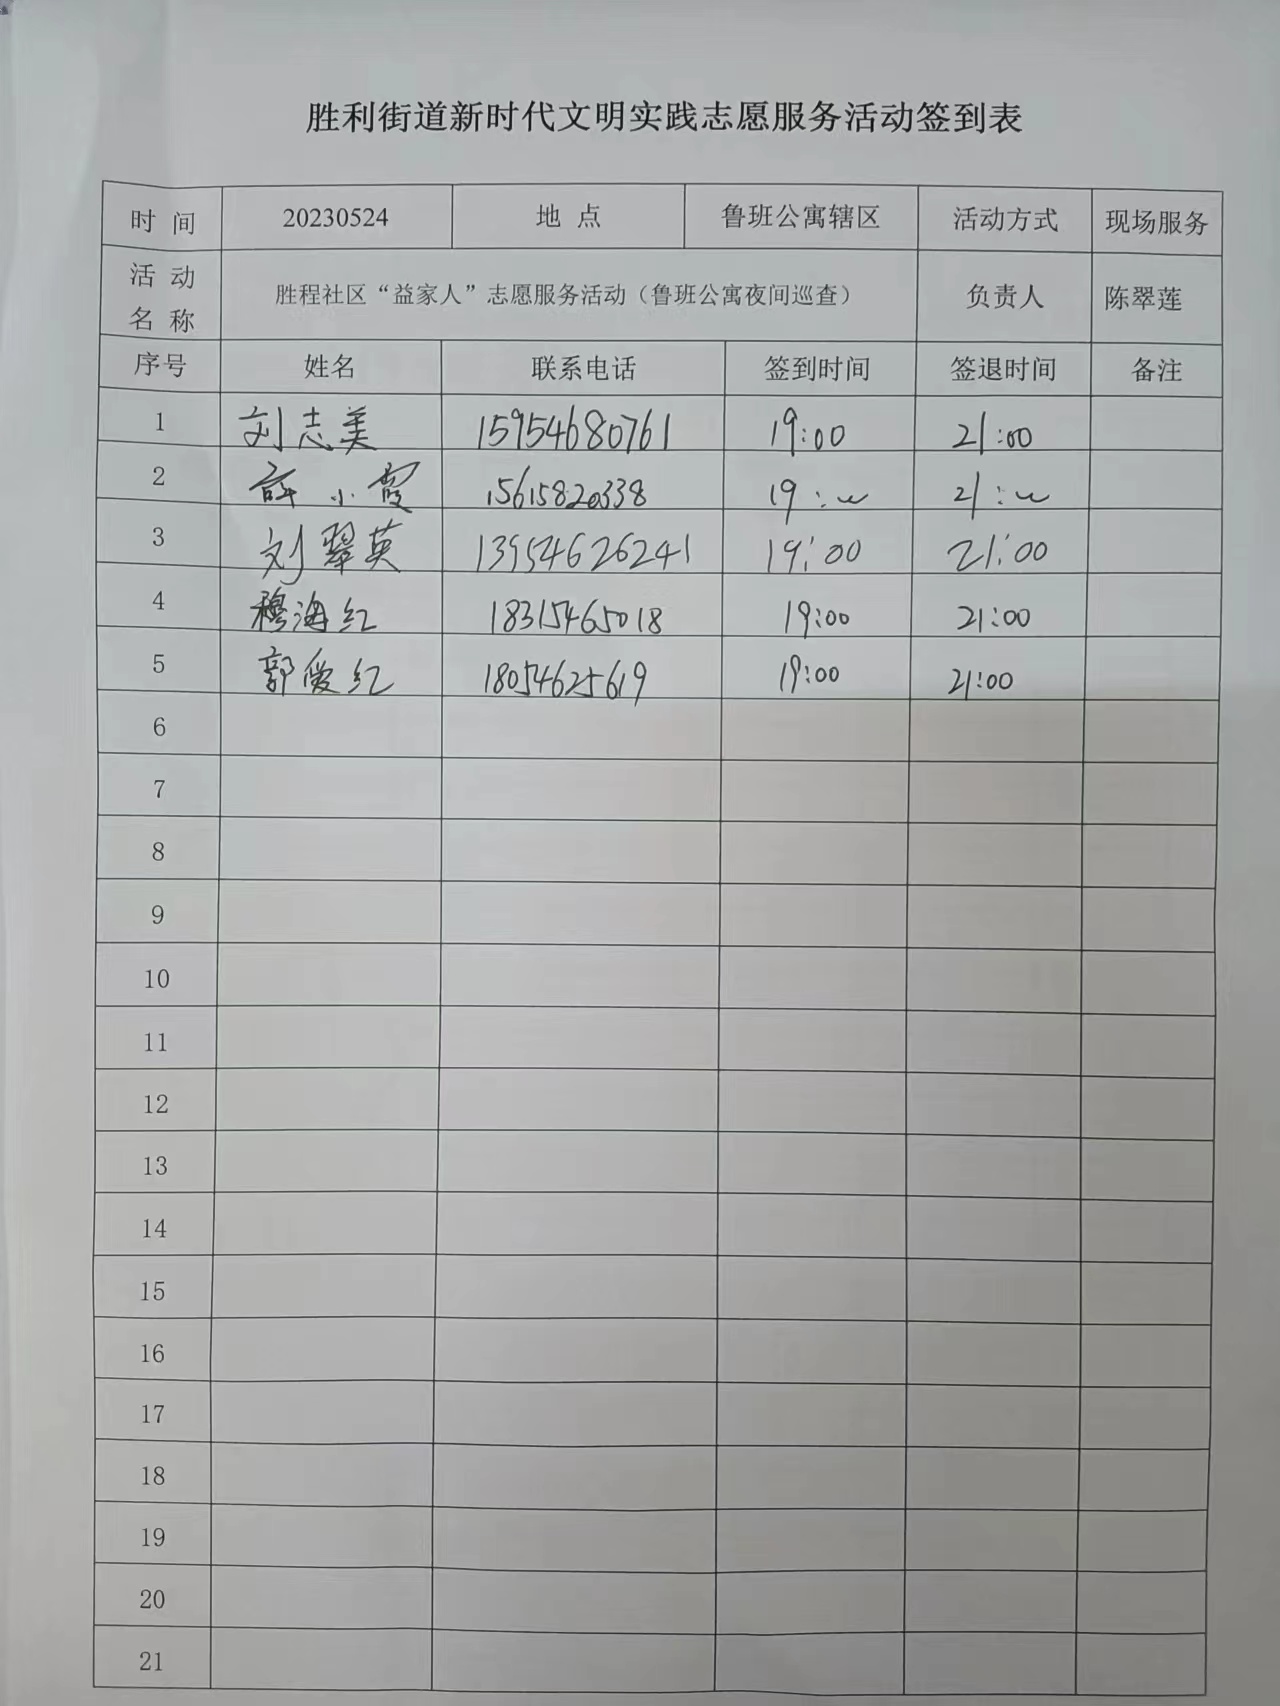 胜利街道新时代文明实践志愿服务活动签到表
时 间 20230524 地 点 鲁班公寓辖区 活动方式 现场服务
活 动 名 称 胜程社区“益家人”志愿服务活动（鲁班公寓夜间巡查） 负责人 陈翠莲
序号 姓名 联系电话 签到时间 签退时间 备注
1 刘志美 15954680761 19:00 21:00
2 薛小霞 15615820338 19:00 21:00
3 刘翠英 13954626241 19:00 21:00
4 穆海红 18315465018 19:00 21:00
5 郭爱红 18054625619 19:00 21:00
6
7
8
9
10
11
12
13
14
15
16
17
18
19
20
21